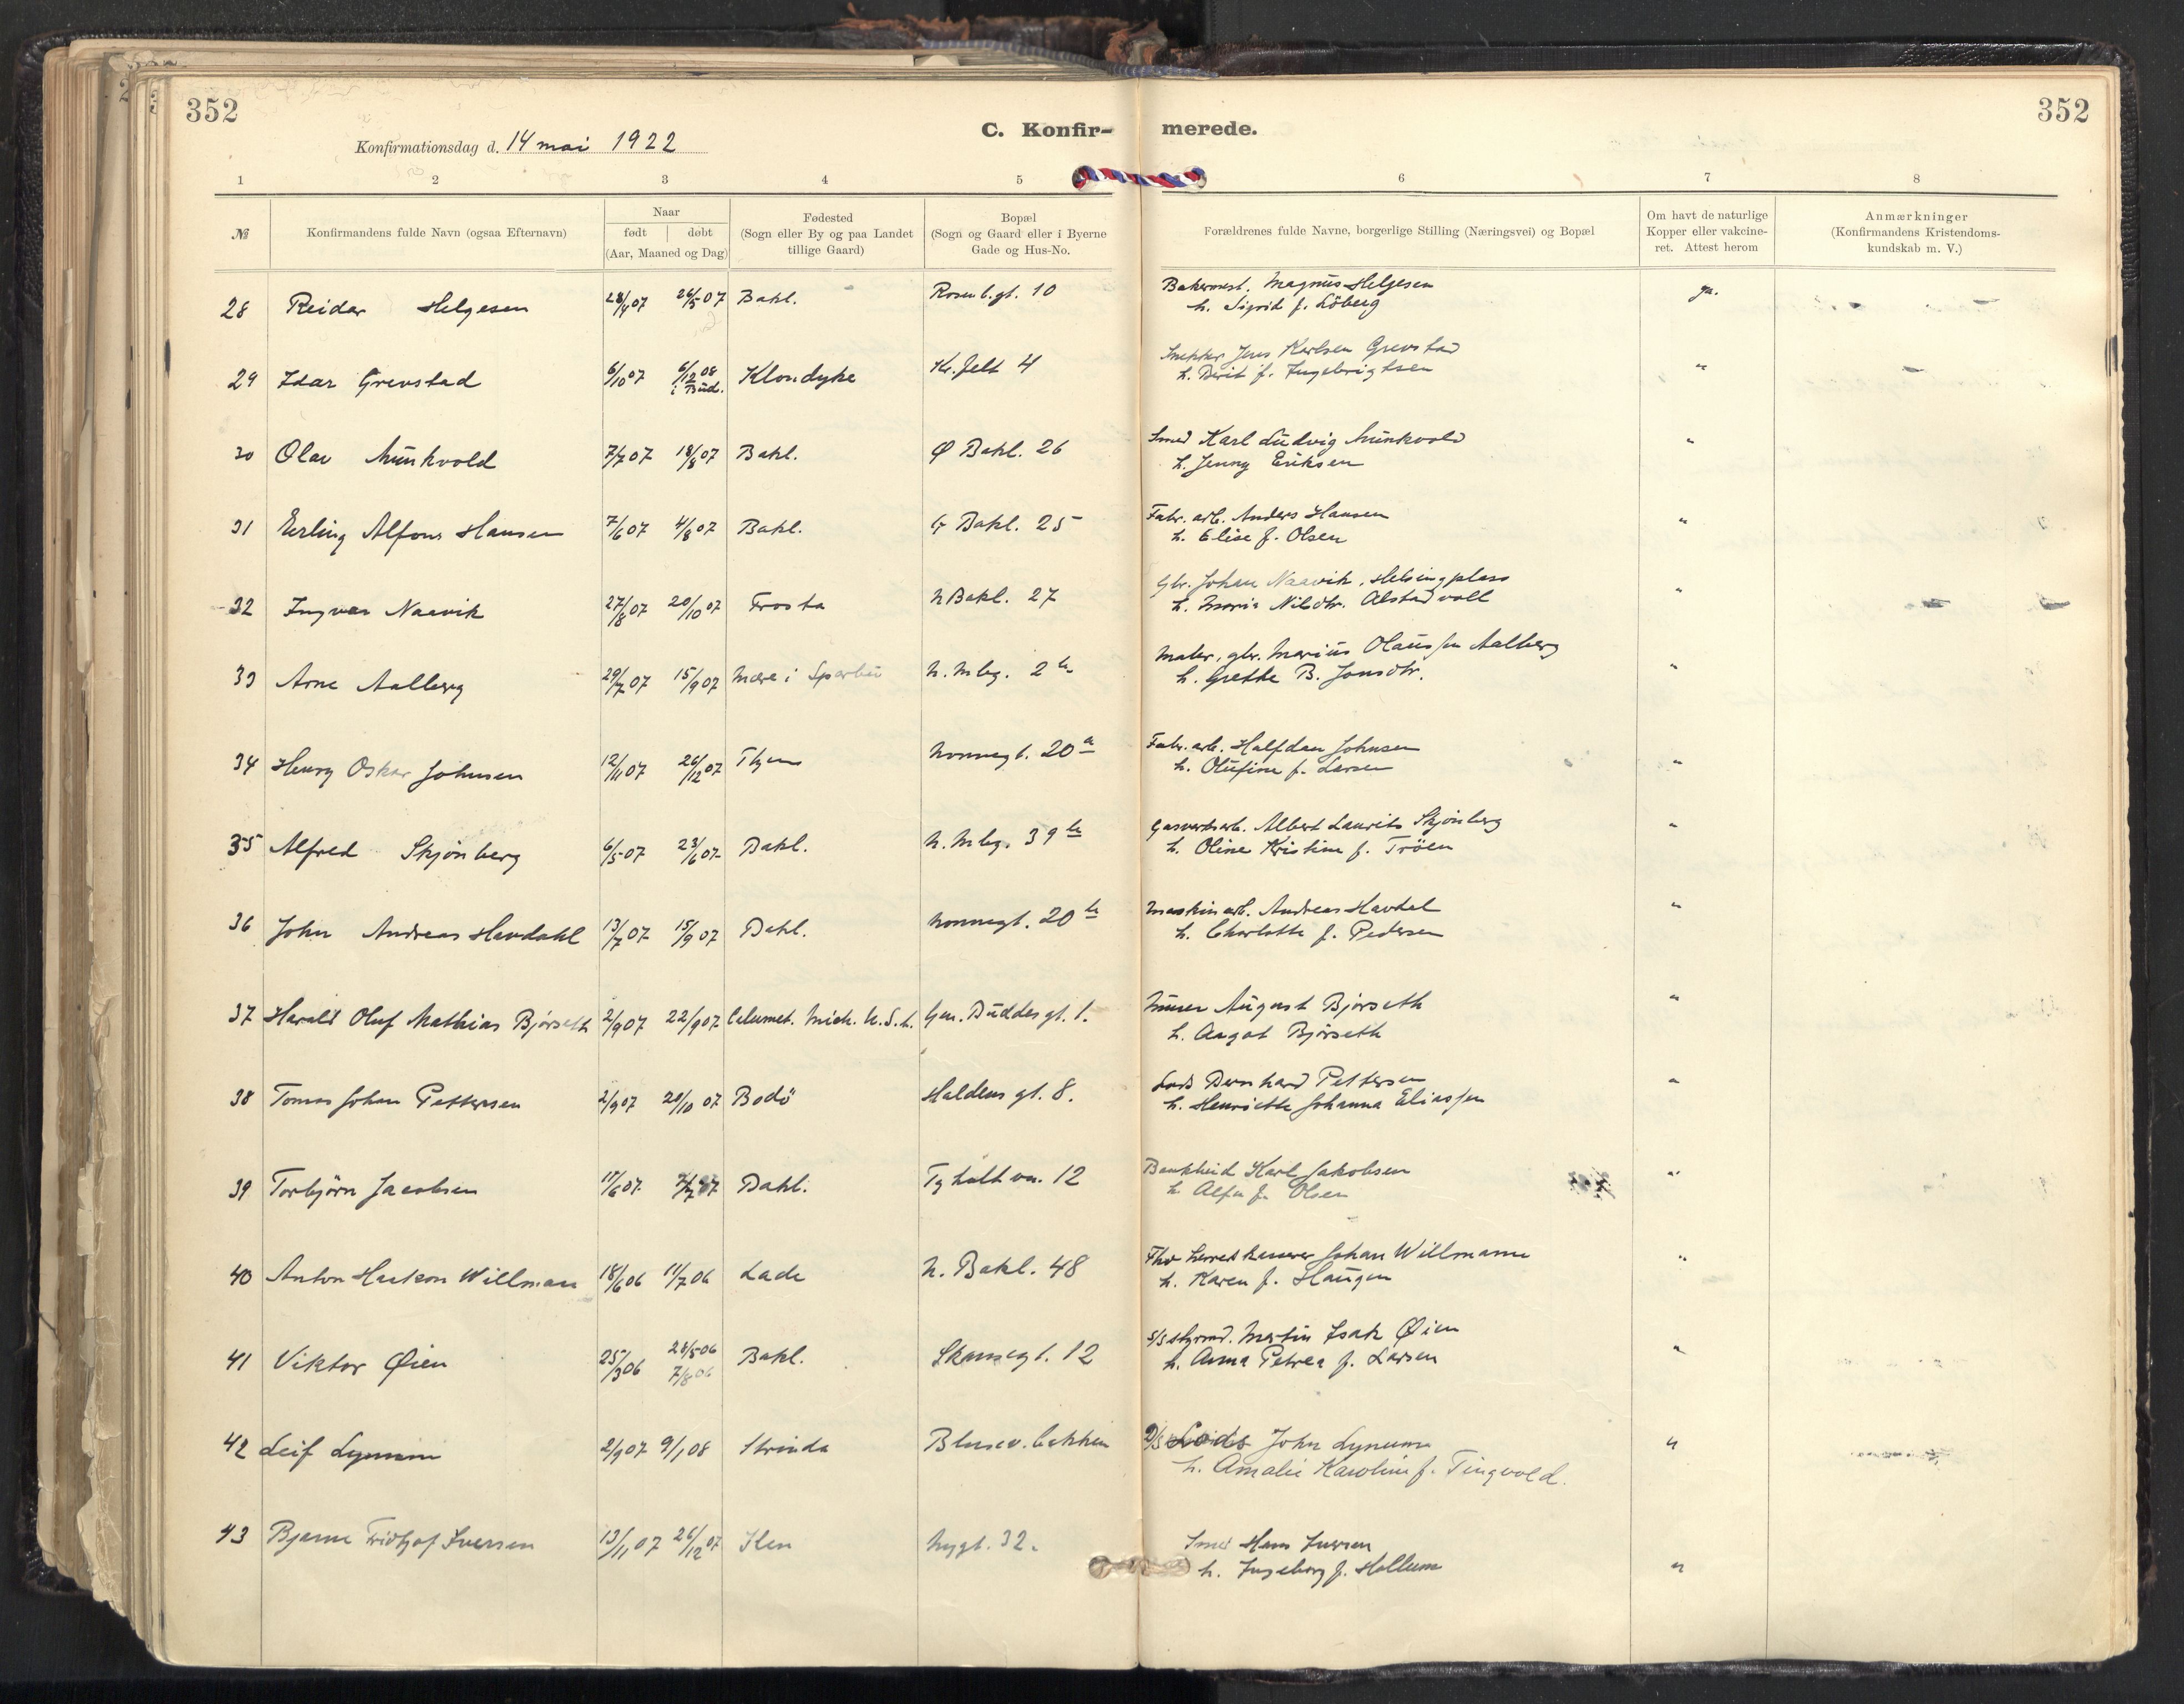 352
352
Konfirmationsdag d. 14 mai 1922
C. Konfir-
merede.
1 2 3 4 5 6 7 8
№
Konfirmandens fulde Navn (ogsaa Efternavn)
Naar
født døbt
(Aar, Maaned og Dag)
Fødested
(Sogn eller By og paa Landet
tillige Gaard)
Bopæl
(Sogn og Gaard eller i Byerne
Gade og Hus-No.
Forældrenes fulde Navne, borgerlige Stilling (Næringsvei) og Bopæl
Om havt de naturlige
Kopper eller vakcine-
ret. Attest herom
Anmærkninger
(Konfirmandens Kristendoms-
kundskab m. V.)
28 Reidar Helgesen 28/4 07 26/5 07 Bakl. Rosenb.gt. 10 Bakermest. Magnus Helgesen ja.
h. Sigrid f. Löberg
29 Idar Grevstad 6/10 07 6/12 08 Klondyke Kr.felt 4 Snekker Jens Karlsen Grevstad "
i Bud. h. Berit f. Ingebrigtsen
30 Olav Munkvold 7/7 07 18/8 07 Bakl. Ø Bakl. 26 Smed Karl Ludvig Munkvold "
h. Jenny Eriksen
31 Erling Alfons Hansen 7/6 07 4/8 07 Bakl. Bakl. 25 Fabr. arb. Anders Hansen "
h. Elise f. Olsen
32 Ingvar Naavik 27/8 07 20/10 07 Frosta N Bakl. 27 Gbr. Johan Naavik, Helsingplass "
h. Maria Nilsdtr. Alstadvoll
33 Arne Aalberg 29/7 07 15/9 07 Mære i Sparbu N. Mbg. 2 b Maler, gbr. Marius Olaussen Aalberg "
h. Grethe B. Jonsdtr.
34 Henry Oskar Johnsen 12/11 07 26/12 07 Thjem Nonnegt. 20 a Fabr. arb. Halfdan Johnsen "
h. Olufine f. Larsen
35 Alfred Skjönberg 6/5 07 23/6 07 Bakl. N. Mbg. 39 b Gasverksarb. Albert Laurits Skjönberg "
h. Oline Kristine f. Tröen
36 John Andreas Havdahl 13/7 07 15/9 07 Bakl. Nonnegt. 20 b Maskinarb. Andreas Havdal "
h. Charlotte f. Pedersen
37 Harald Oluf Mathias Bjørseth 2/9 07 22/9 07 Calumet. Mich. U.S.A. Gen. Buddes gt. 1. Murer August Bjørseth "
h. Aagot Bjørseth
38 Tomas Johan Pettersen 2/9 07 20/10 07 Bodö Haldens gt. 8. Lods Bernhard Pettersen "
h. Henriette Johanna Eliassen
39 Torbjörn Jacobsen 11/6 07 7/7 07 Bakl. Tyholt vn. 12 Bankbud Karl Jakobsen "
h. f. Olsen
40 Anton Haakon Willmann 18/6 06 11/7 06 Lade N. Bakl. 48 Fhv herredskasserer Johan Willmann "
h. Karen f. Haugen
41 Viktor Øien 25/3 06 28/5 06 Bakl. Skansegt. 12 S/S styrmd. Martin Isak Øien "
7/8 06 h. Anna Petrea f. Larsen
42 Leif Lynum 2/9 07 9/1 08 Strinda Blusev.bakken D/S Lods John Lynum "
h. Amalie Karoline f. Tingvold.
43 Bjarne Fridtjof Iversen 13/11 07 26/12 07 Ilen Nygt. 32. Smed Hans Iversen
h. Ingeborg f. Hollum "